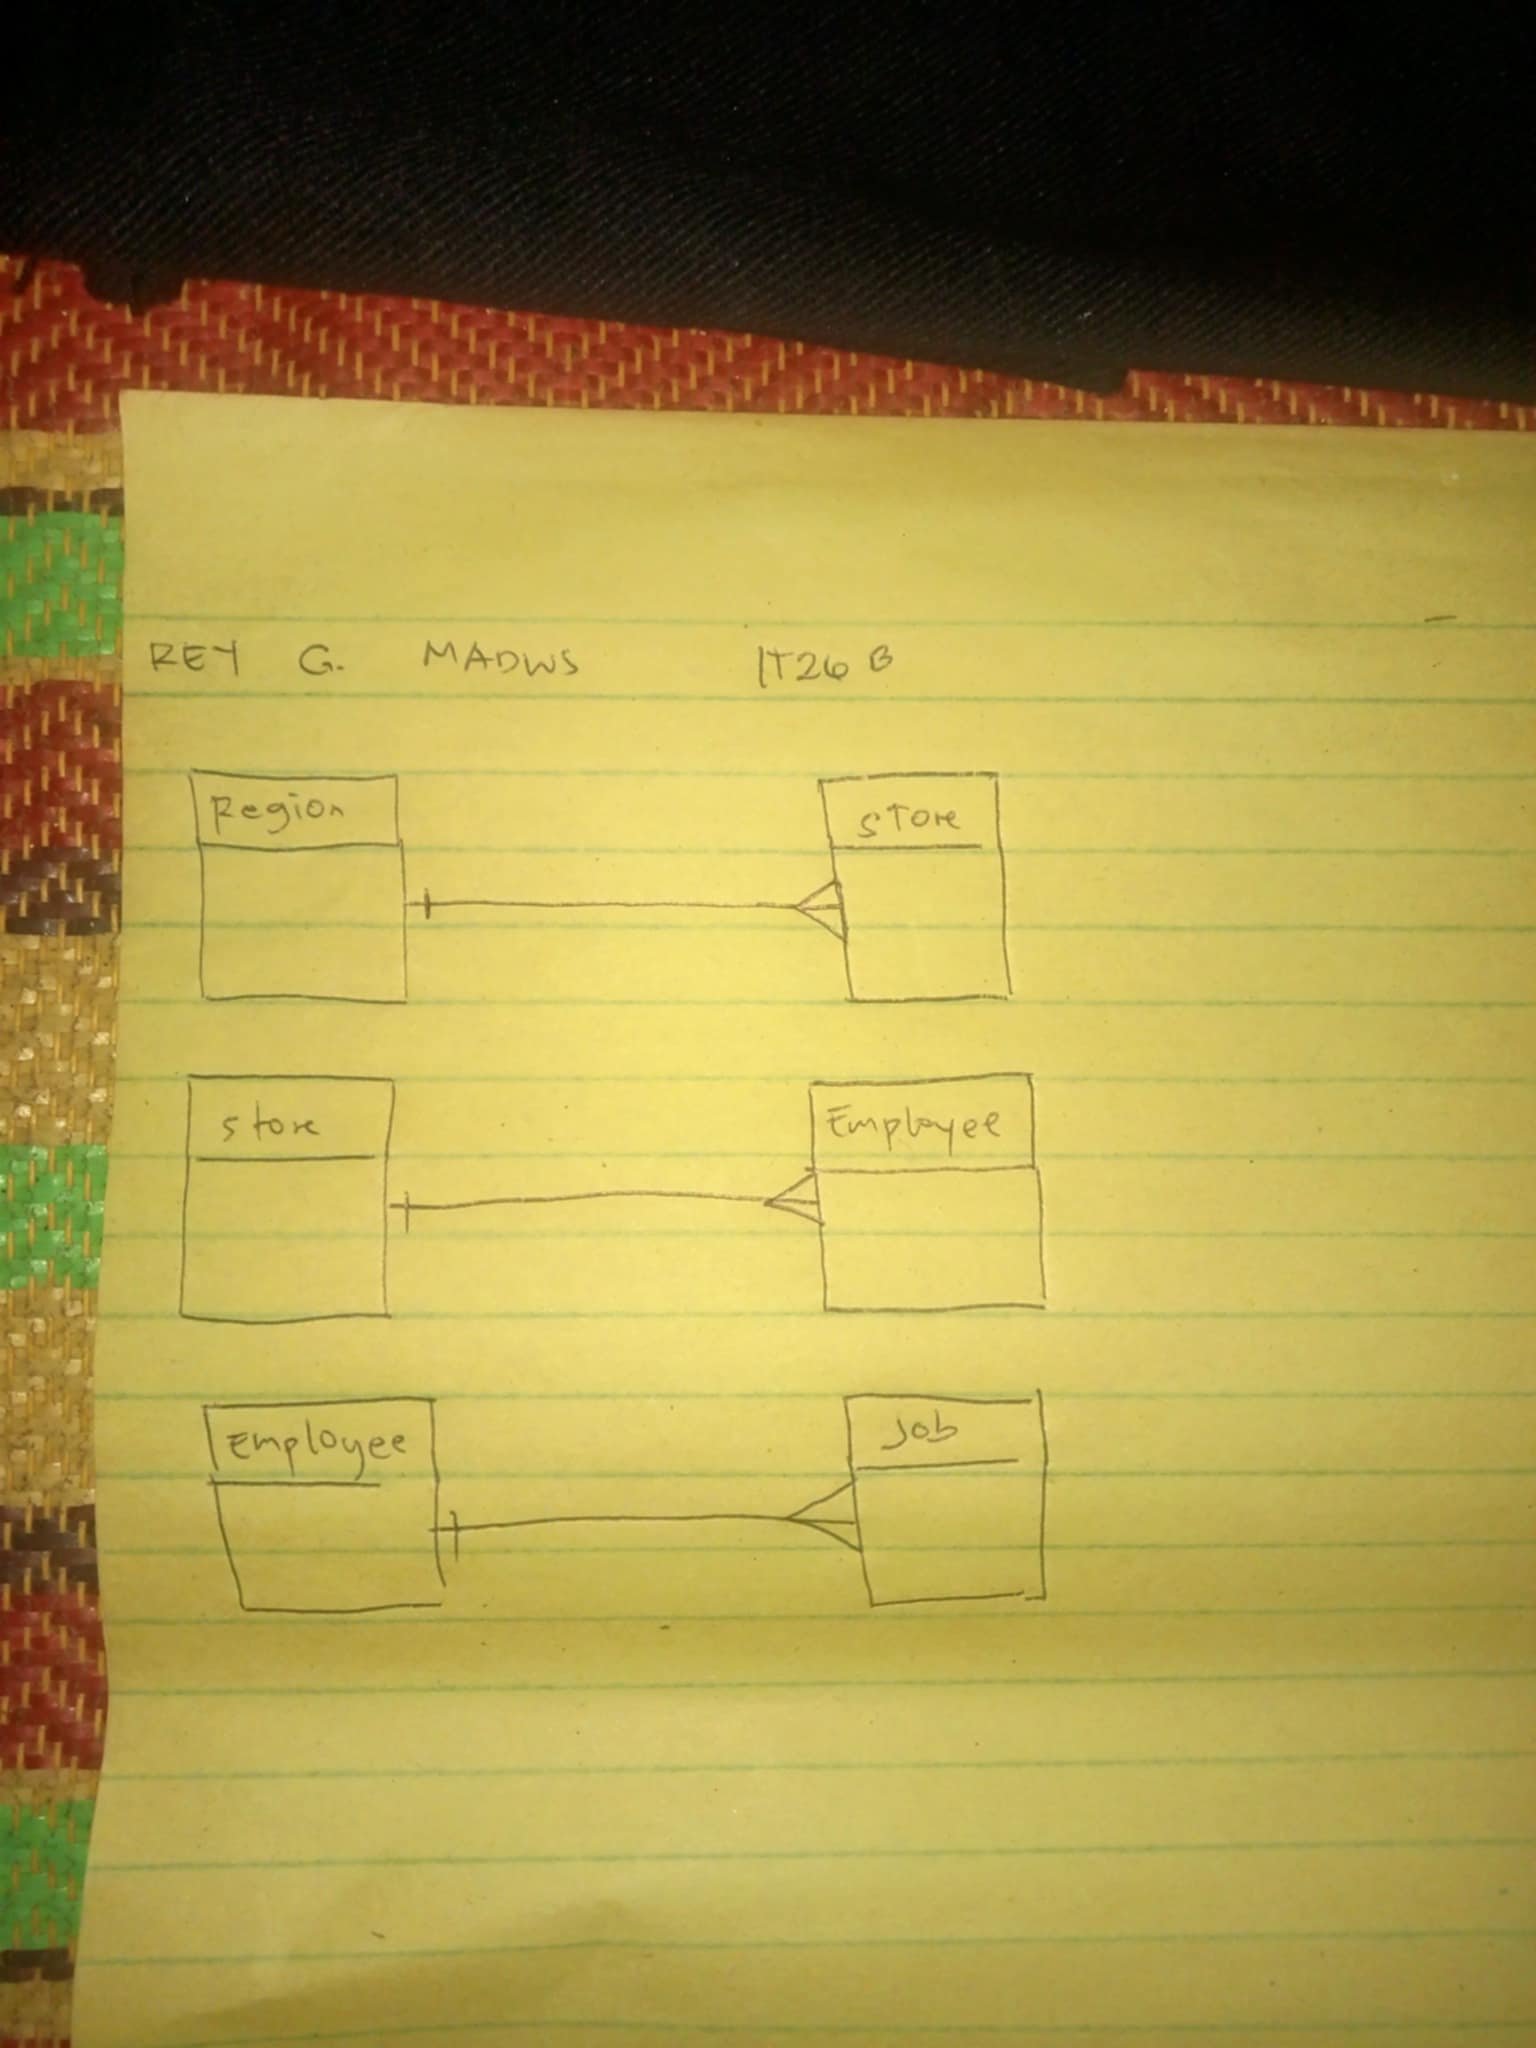 REY G. MADWS IT26 B
Region store
store Employee
Employee Job